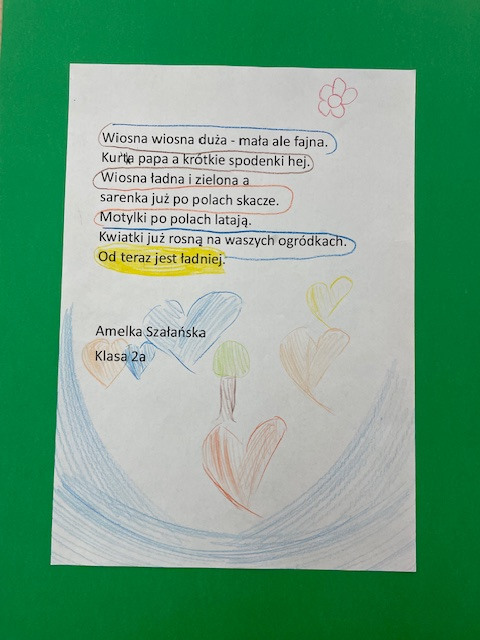 Wiosna wiosna duża - mała ale fajna.
Kurtka papa a krótkie spodenki hej.
Wiosna ładna i zielona a
sarenka już po polach skacze.
Motylki po polach latają.
Kwiatki już rosną na waszych ogródkach.
Od teraz jest ładniej.
Amelka Szałańska
Klasa 2a